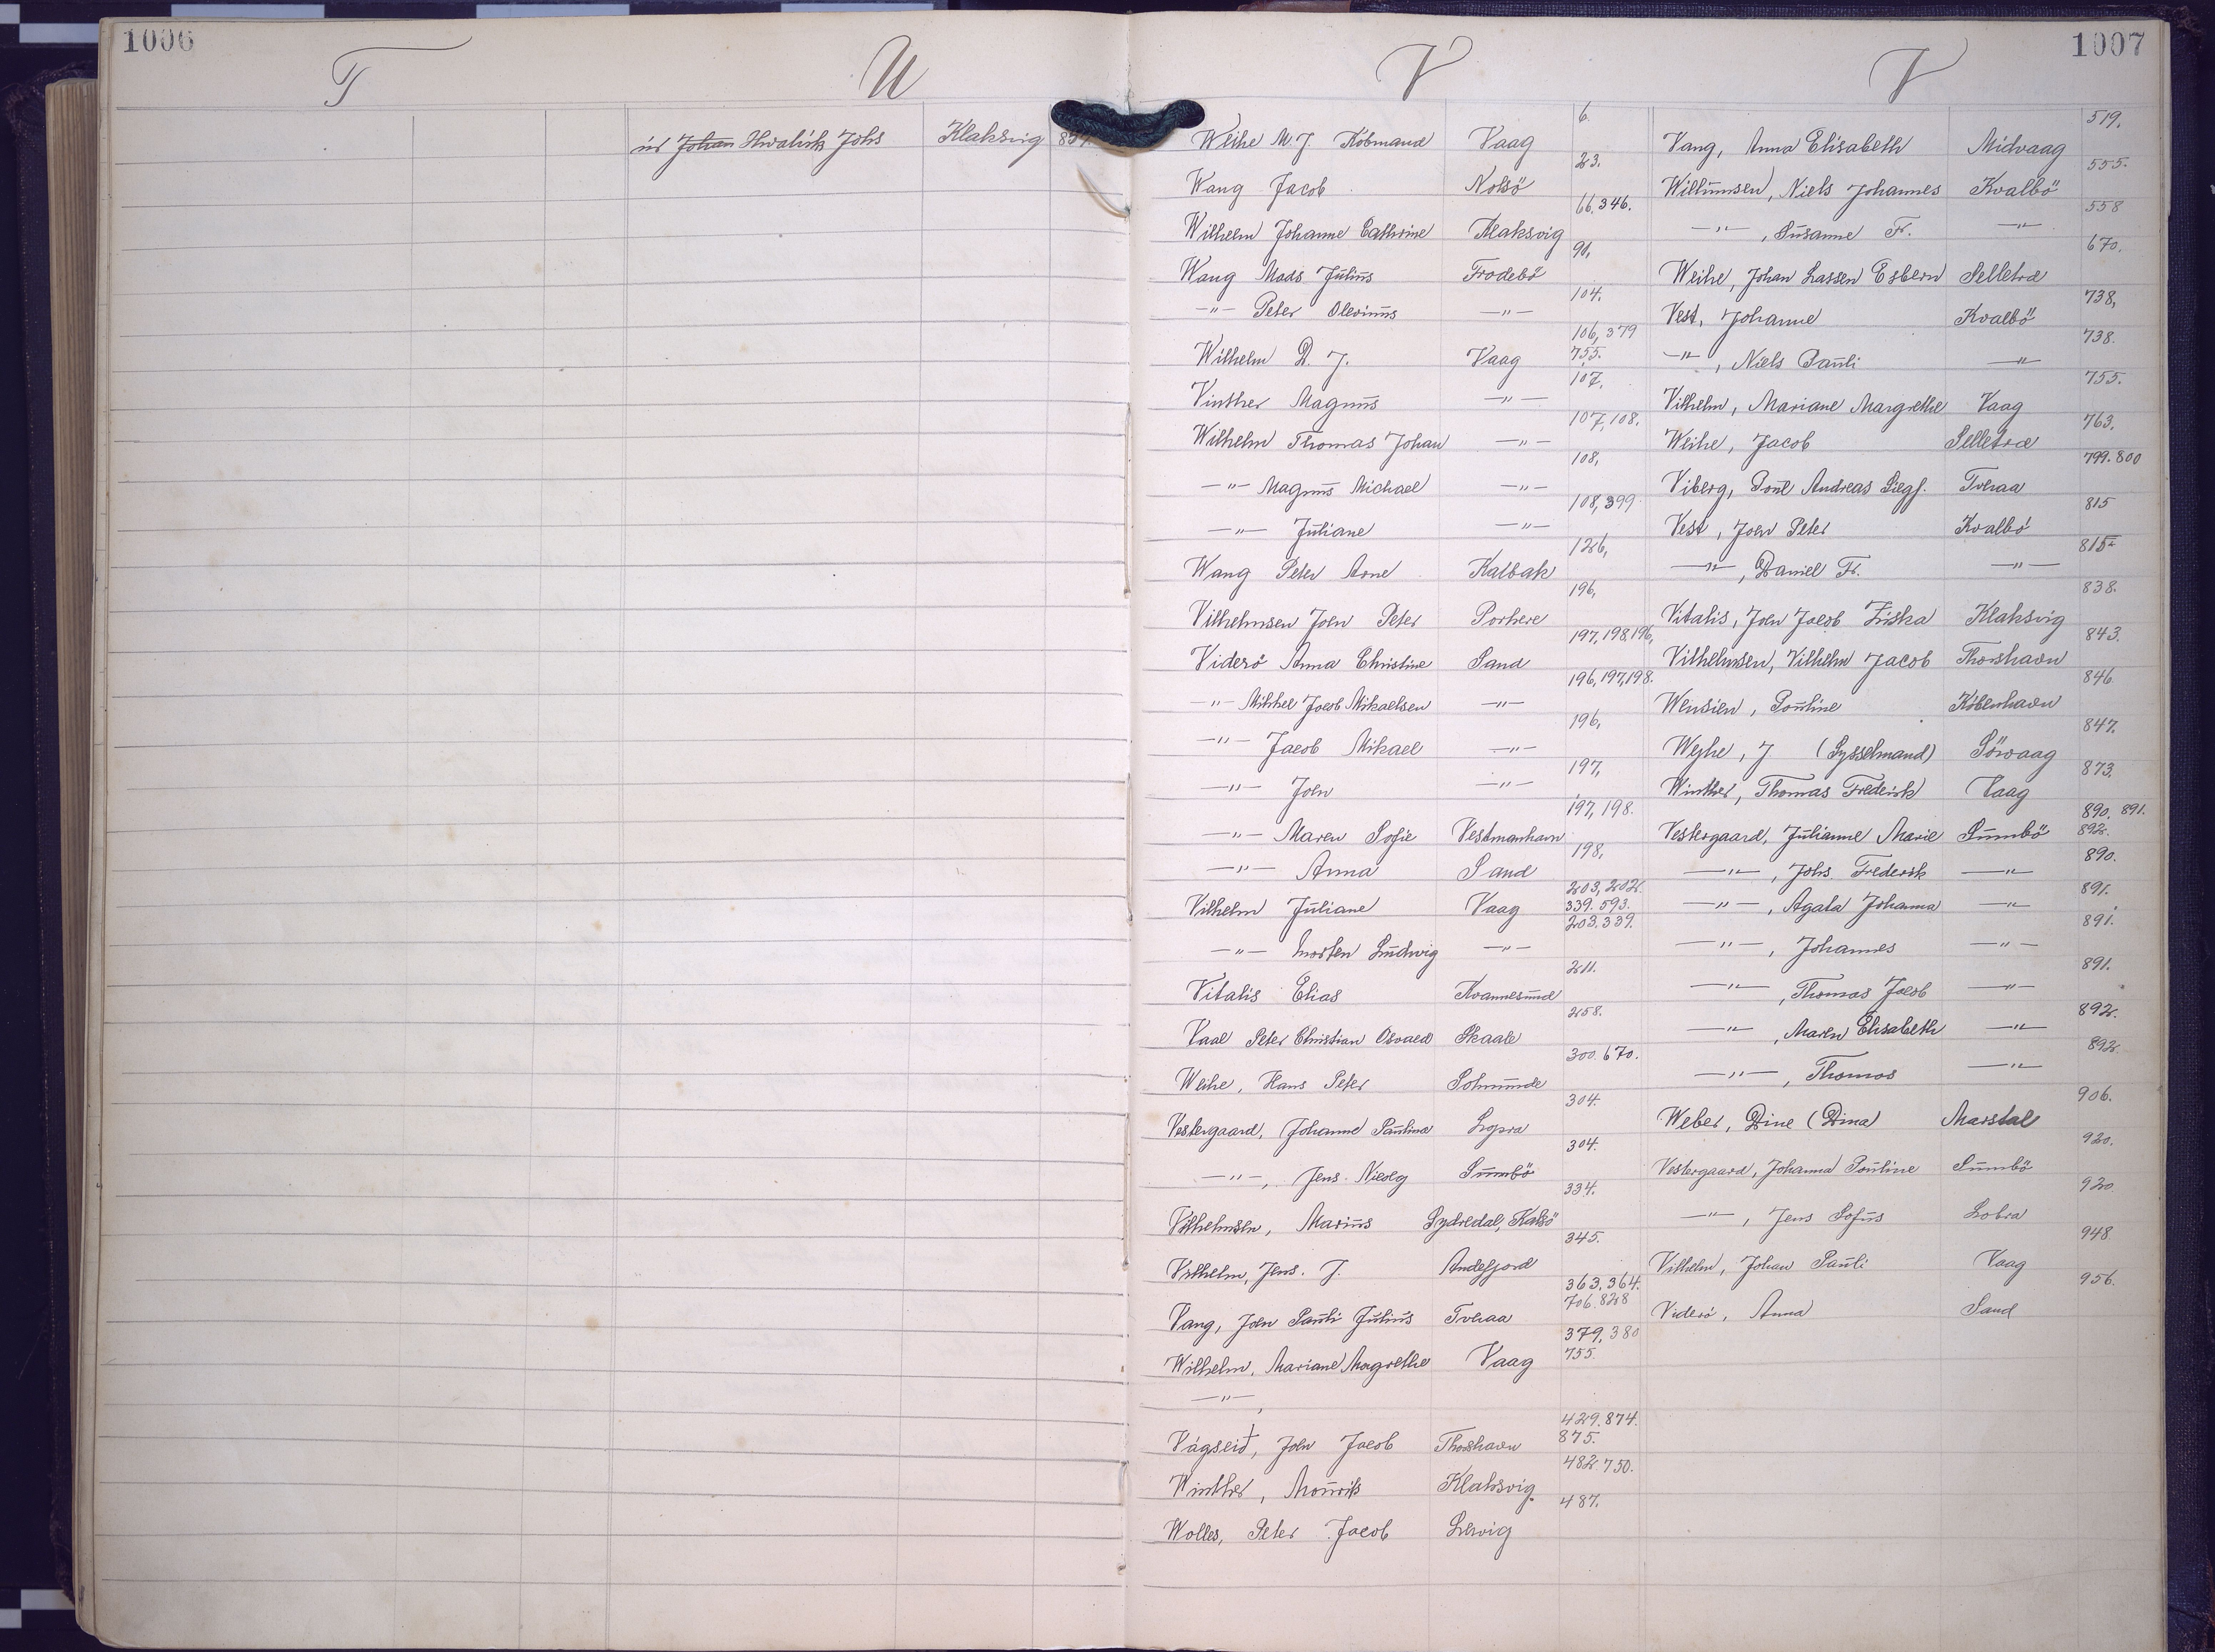 1006
T
U
úr Johan Hvalvik Johs Klaksvig
1007
V
V
6.
Weihe M. J. Köbmand Vaag
23.
Wang Jacob Nolsö
66. 346.
Wilhelm Johanne Cathrine Klaksvig
90,
Wang Mads Julius Frodebö
104.
—"— Peter Olevinus —"—
106, 379
Wilhelm D. J. Vaag 755.
107,
Vinther Magnus —"—
107, 108.
Wilhelm Thomas Johan —"—
108,
—"— Magnus Michael —"—
108, 399
—"— Juliane —"—
126,
Wang Peter Arne Kalbak
196,
Vilhelmsen Joen Peter Porkere
197, 198, 196,
Viderö Anna Christine Sand
196, 197, 198.
—"— Mikkel Jacob Mikaelsen —"—
196,
—"— Jacob Mikael —"—
197,
—"— Joen —"—
197, 198.
—"— Maren Sofie Vestmanhavn
198,
—"— Anna Sand
203, 202.
Vilhelm Juliane Vaag 339. 593.
203. 339.
—"— Morten Ludvig —"—
211.
Vitalis Elias Kvannesund
258.
Vaal Peter Christian Osvald Skaale
300. 670.
Weihe, Hans Peter Solmunde
304.
Vestergaard, Johanne Paulina Lopra
304.
—"—, Jens Nicolg Sumbö
334.
Vilhelmsen, Marius Sydredal, Kalsö
345.
Vilhelm, Jens. J. Andefjord
363. 364.
706. 828
Vang, Joen Pauli Julius Tveraa
379, 380
Wilhelm, Mariane Magrethe Vaag 755.
—"—,
429. 874.
Vágseið, Joen Jacob Thorshavn 875.
482. 750.
Winther, Mourits Klaksvig.
487.
Wolles, Peter Jacob Lervig
519.
Vang, Anna Elisabeth Midvaag
555.
Willumsen, Niels Johannes Kvalbö
558
—"—, Susanne Fr. —"—
670.
Weihe, Johan Lassen Esbern Selletræ
738,
Vest, Johanne Kvalbö
738.
—"—, Niels Pauli —"—
755.
Vilhelm, Mariane Margrethe Vaag
763.
Weihe, Jacob Selletræ
799. 800
Viberg, Poul Andreas Siegf. Tveraa
815
Vest, Joen Peter Kvalbö
815
—"—, Daniel Fr. —"—
838.
Vitalis, Joen Jacob Ziska Klaksvig
843.
Vilhelmsen, Vilhelm Jacob Thorshavn
846.
Wensien, Pouline Köbenhavn
847.
Wejhe, J (Sysselmand) Sörvaag
873.
Winther, Thomas Frederik Vaag
890. 891.
Vestergaard, Julianne Marie Sumbö 892.
890.
—"—, Johs Frederik —"—
891.
—"—, Agata Johanna —"—
891.
—"—, Johannes —"—
891.
—"—, Thomas Jacob —"—
892.
—"—, Maren Elisabeth —"—
892.
—"—, Thomas —"—
906.
Weber, Dine (Dina) Marstal
920.
Vestergaard, Johanna Pouline Sumbö
920.
—"—, Jens Sofus Lobra
948.
Vilhelm, Johan Pauli Vaag
956.
Viderö, Anna Sand